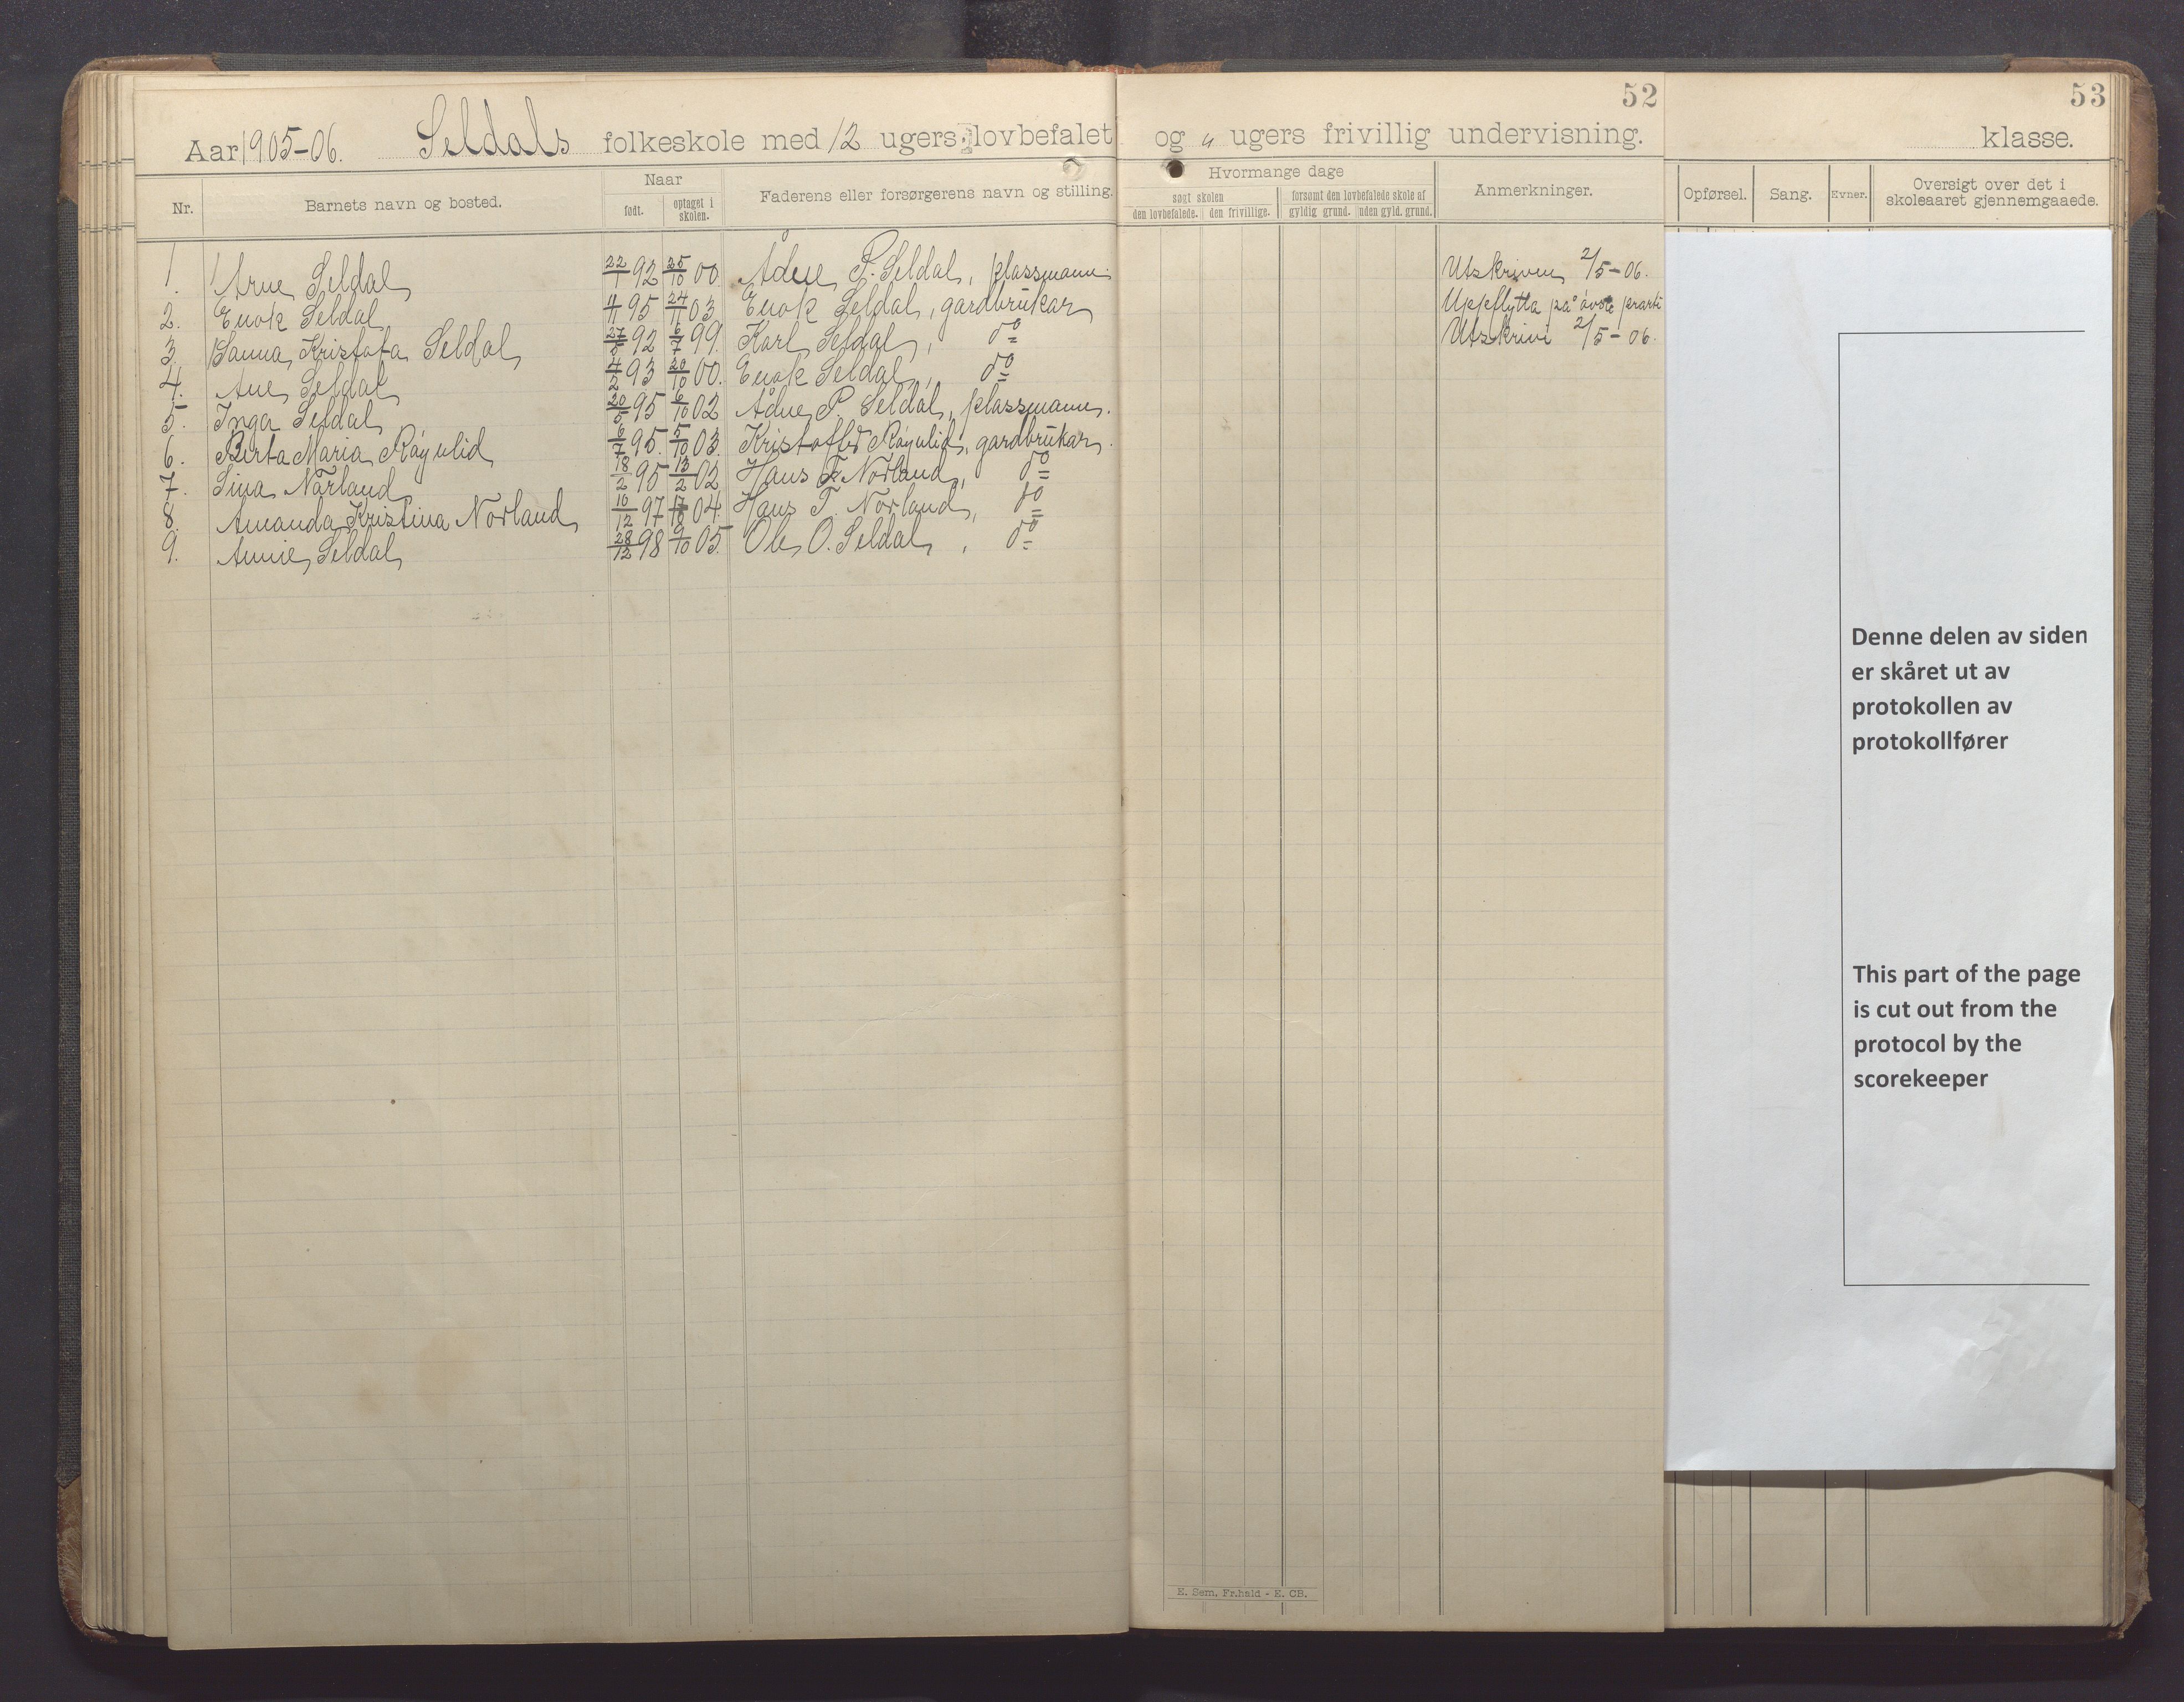 52
53
Aar 1905-06. Seldals folkeskole med 12 ugers lovbefalet og " ugers frivillig undervisning. klasse.
Nr. Barnets navn og bosted. Naar født. optaget i skolen. Faderens eller forsørgerens navn og stilling. Hvormange dage søgt skolen den lovbefalede. den frivillige. forsømt den lovbefalede skole af gyldig grund. uden gyld. grund. Anmerkninger. Opførsel. Sang. Evner. Oversigt over det i skoleaaret gjennemgaaede.
1. Arne Seldal 22/1 92 25/10 00. Ådne P. Seldal, plassmann. Utskriven 2/5-06.
2. Enok Seldal 11/11 95 24/11 03 Enok Seldal, gardbrukar Uppflytta på øvste parti
3. Sanna Kristofa Seldal 27/5 92 6/7 99. Karl Seldal, do Utskrivi 2/5-06.
4. Ane Seldal 4/2 93 20/10 00. Enok Seldal, do
5. Inga Seldal 20/5 95 6/10 02 Ådne P. Seldal, plassmann.
6. Berta Maria Røyulid 6/7 95. 5/10 03. Kristoffer Røyulid, gardbrukar.
7. Sina Norland 18/2 95 13/2 02 Hans T. Norland, do
8. Amanda Kristina Norland 10/12 97 17/10 04. Hans T. Norland, do
9. Annie Seldal 28/12 98 9/10 05. Ole O. Seldal, do
Denne delen av siden
er skåret ut av
protokollen av
protokollfører
This part of the page
is cut out from the
protocol by the
scorekeeper
E. Sem. Fr.hald - E. CB.